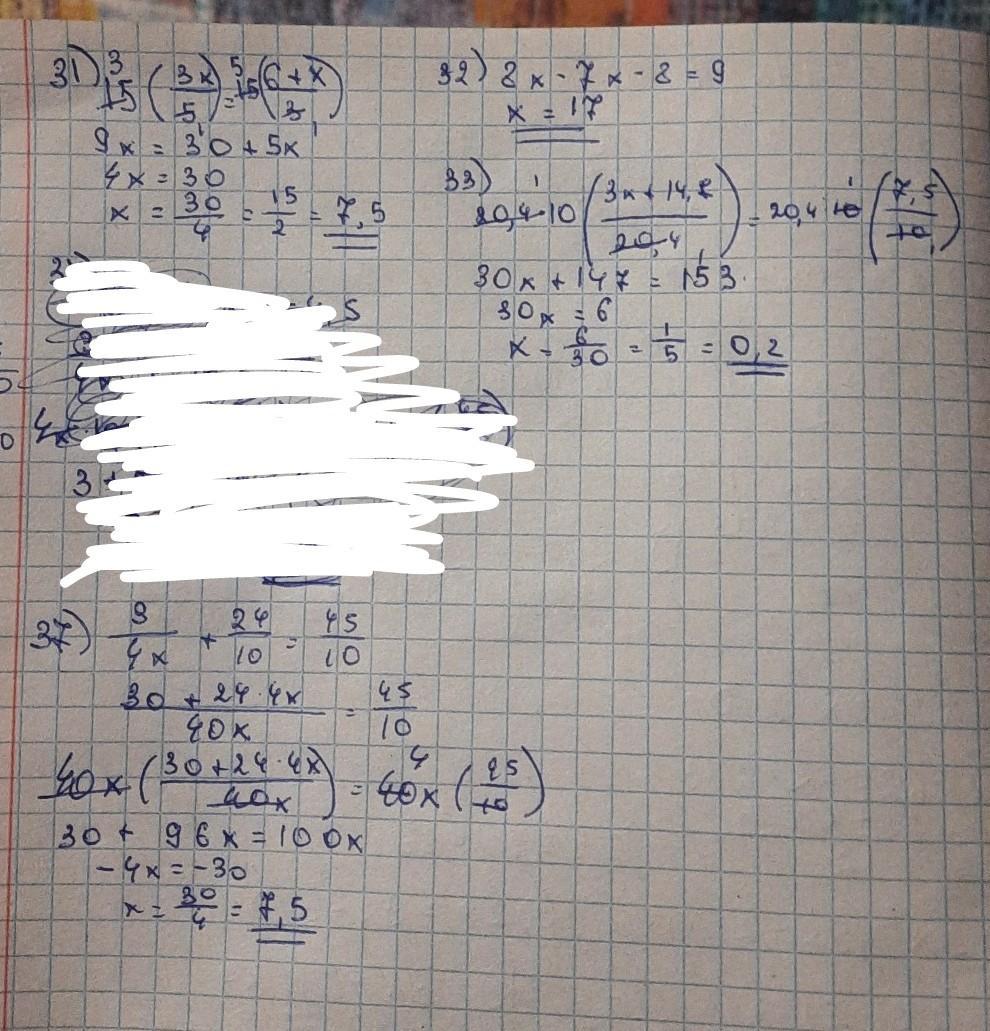 31) 15 (3x/5) = 15 (6+x/3)
3 5
9x = 30 + 5x
4x = 30
x = 30/4 = 15/2 = 7,5
32) 8x - 7x - 8 = 9
x = 17
33) 20,4·10 (3x + 14,7/20,4) = 20,4·10 (7,5/10)
30x + 147 = 153
30x = 6
x = 6/30 = 1/5 = 0,2
37) 3/4x + 24/10 = 45/10
30 + 24·4x/40x = 45/10
40x (30+24·4x/40x) = 40x (25/10)
4
30 + 96x = 100x
-4x = -30
x = 30/4 = 7,5